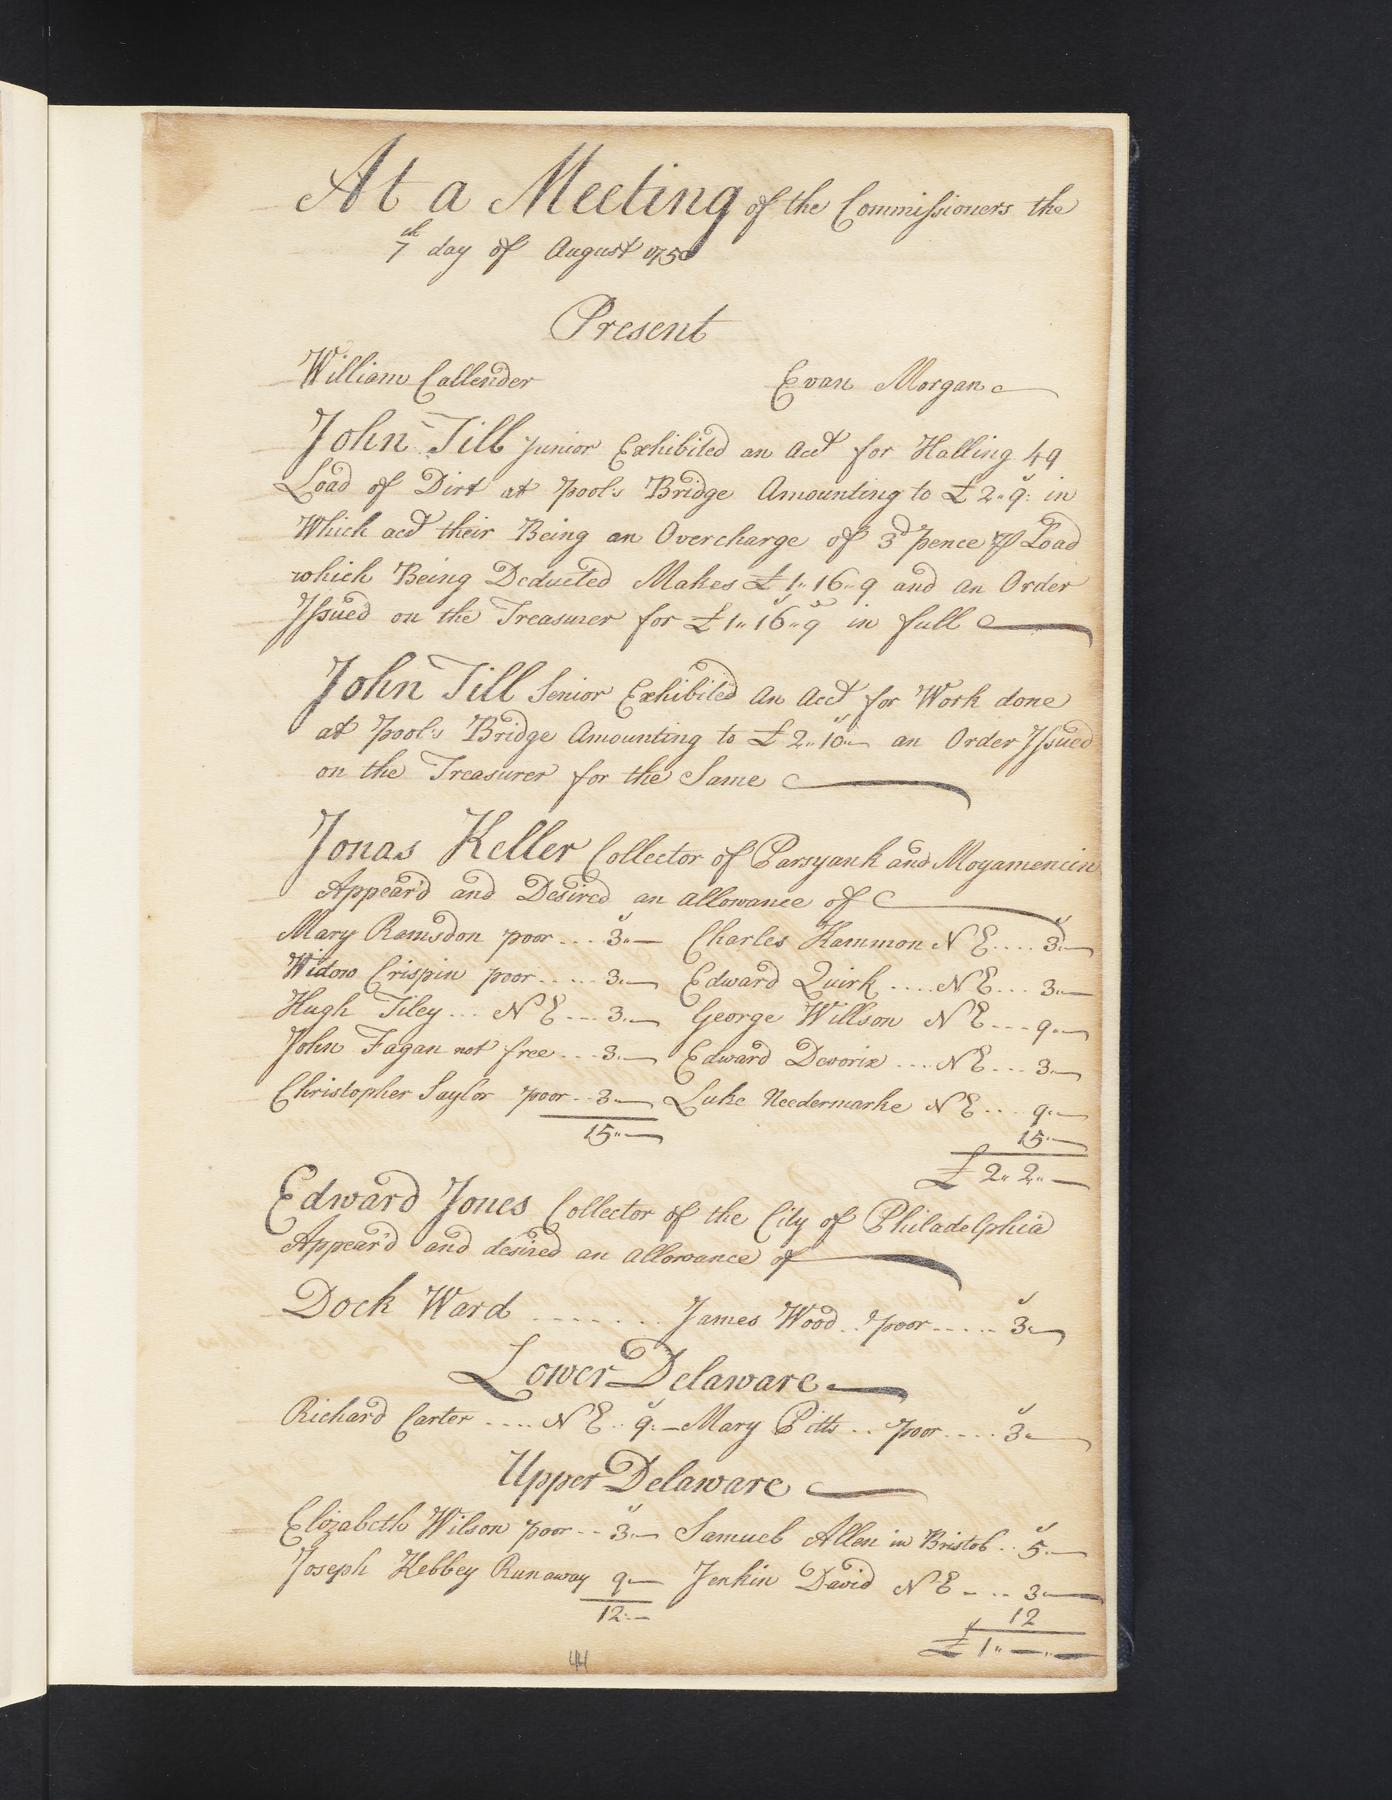 At a Meeting of the Commissioners the
7th day of August 1750
Present
William Callender Evan Morgan
John Till Junior Exhibited an Acct for Halling 49
Load of Dirt at Pool's Bridge Amounting to £ 2"9: in
Which acct their Being an Overcharge of 3d pence ⅌ Load
which Being Deducted Makes £ 1"16"9 and an Order
Issued on the Treasurer for £ 1"16"9 in full
John Till Senior Exhibited An Acct for Work done
at Pool's Bridge Amounting to £ 2"10"— an Order Issued
on the Treasurer for the Same
Jonas Keller Collector of Parsyank and Moyamencin
Appear'd and Desired an allowance of
Mary Ramsdon poor .... 3"— Charles Hammon N E .... 3"—
Widow Crispin poor ..... 3"— Edward Quirk .... N E ... 3"—
Hugh Tiley ... N E ... 3"— George Willson N E ... 9"—
John Fagan not free ... 3"— Edward Devorix .... N E ... 3"—
Christopher Saylor poor .. 3"— Luke Needermarke N E .... 9"—
15"— 15"—
£ 2"2"—
Edward Jones Collector of the City of Philadelphia
Appear'd and desired an allowance of
Dock Ward ....... James Wood .. poor ..... 3"—
Lower Delaware
Richard Carter .... N E .. 9:— Mary Pitts .. poor .... 3"—
Upper Delaware
Elizabeth Wilson poor .. 3"— Samuel Allen in Bristol .. 5"—
Joseph Hebbey Runaway 9"— Jenkin David N E ... 3"—
12"— 12
£ 1"—"—
44